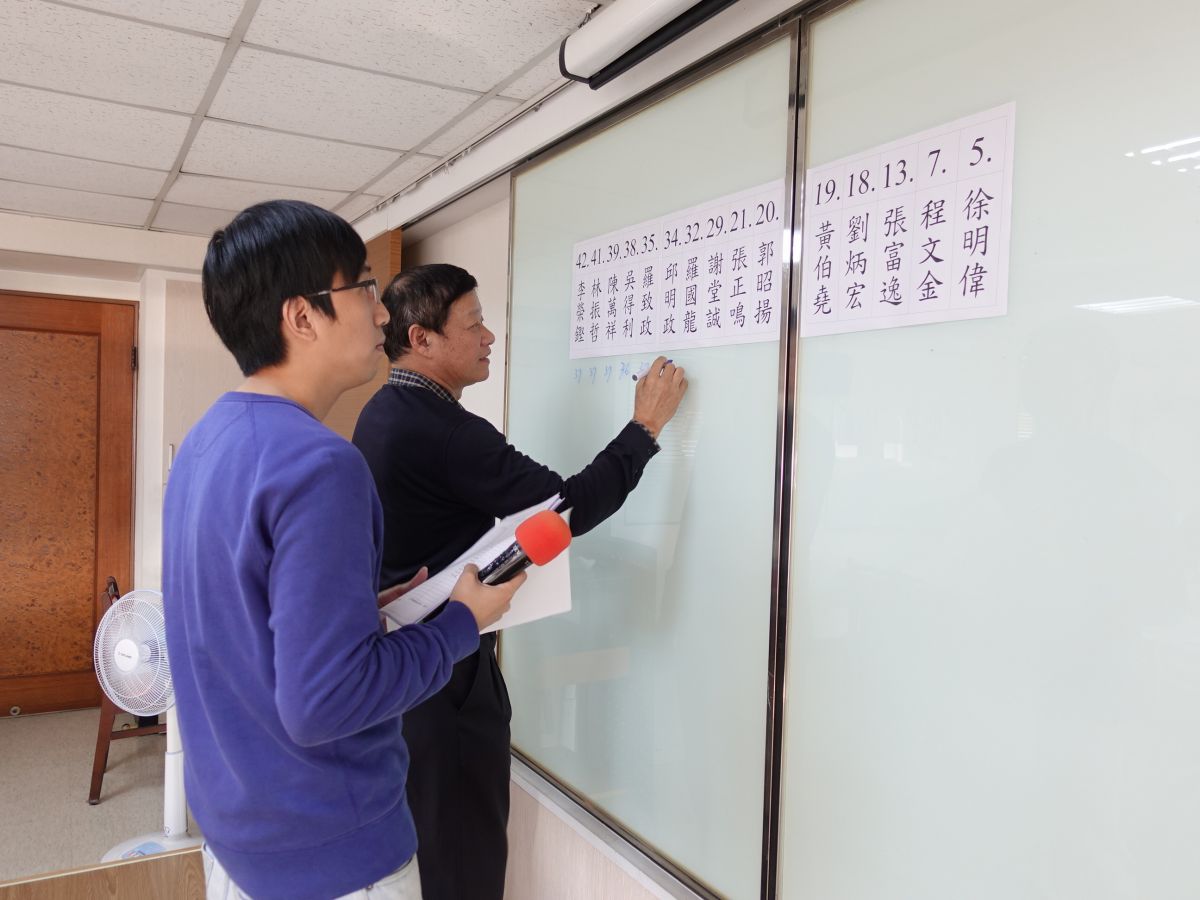 5. 徐明偉
7. 程文金
13. 張富逸
18. 劉炳宏
19. 黃伯堯
20. 郭昭揚
21. 張正鳴
29. 謝堂誠
32. 羅國龍
34. 邱明政
35. 羅致政
38. 吳得利
39. 陳萬祥
41. 林振哲
42. 李榮鏗
37 37 37 36